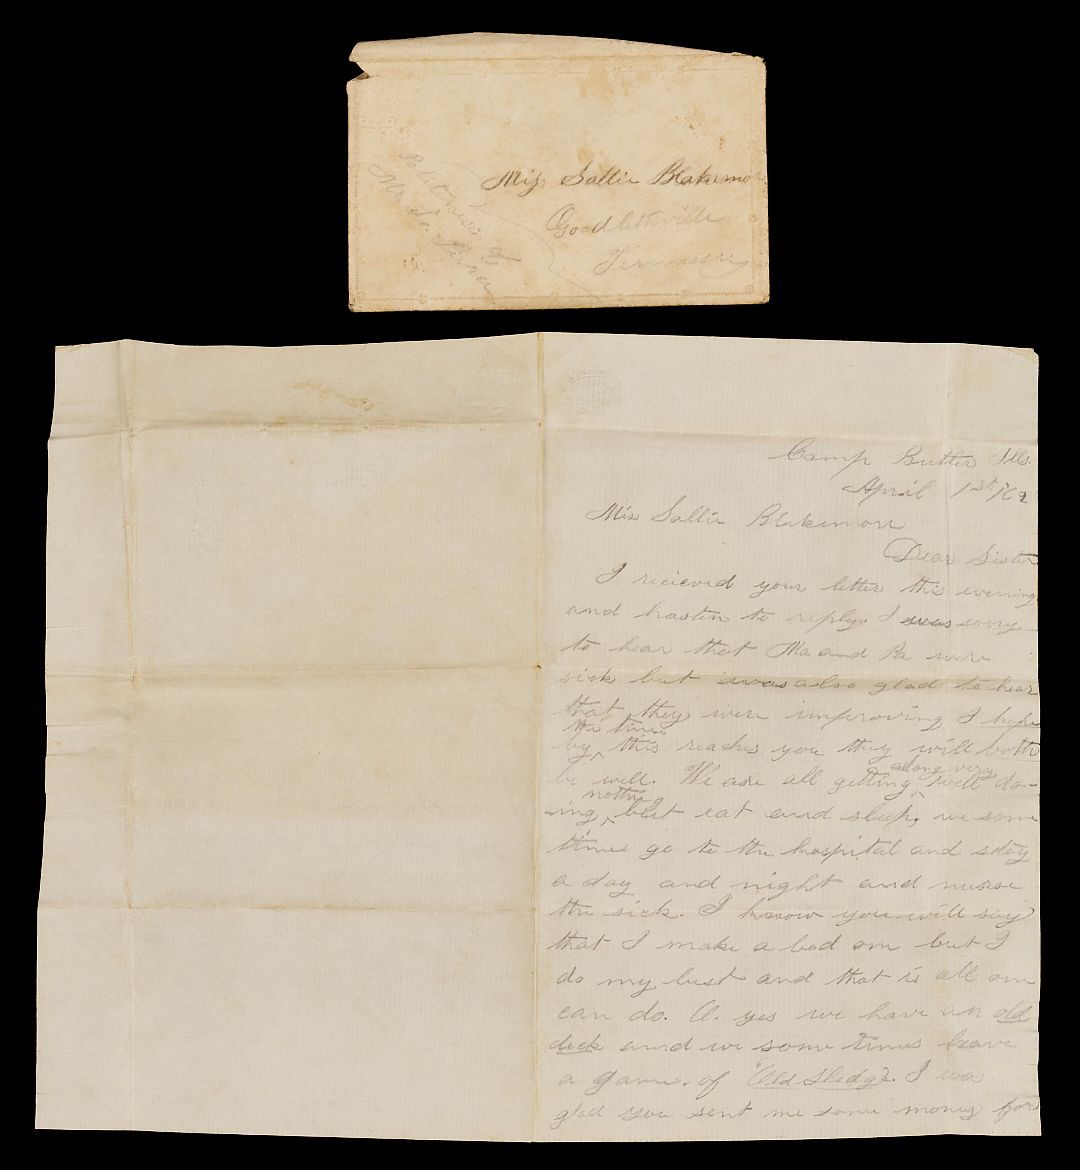 Miss Sallie Blakemor
Goodlettsville
Tennessee
Politness of
Mr
Camp Butler Ills.
April 1st /62
Miss Sallie Blakemore
Dear Sister
I recieved your letter this evening
and hasten to reply. I was sorry
to hear that Ma and Pa were
sick but was also glad to hear
that they were improving I hope
the time
by ^ this reaches you they will both
along very
be well. We are all getting ^ well do-
nothing
-ing ^ but eat and sleep, we some
times go to the hospital and stay
a day and night and nurse
the sick. I know you will say
that I make a bad one but I
do my best and that is all one
can do. O. yes we have an old
deck and we some times have
a game of "Old Sledge. I was
glad you sent me some money for